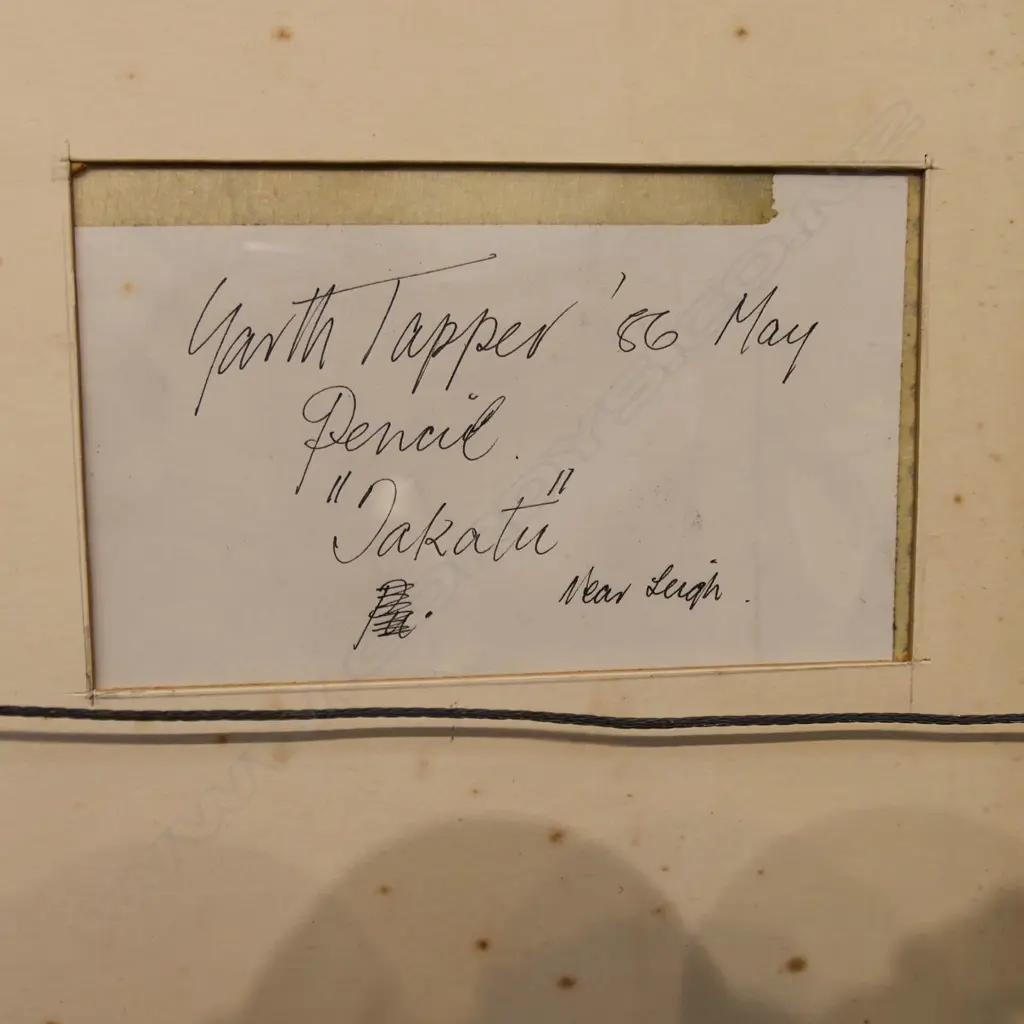 Garth Tapper '86 May
Pencil.
"Takatu"
Near Leigh.